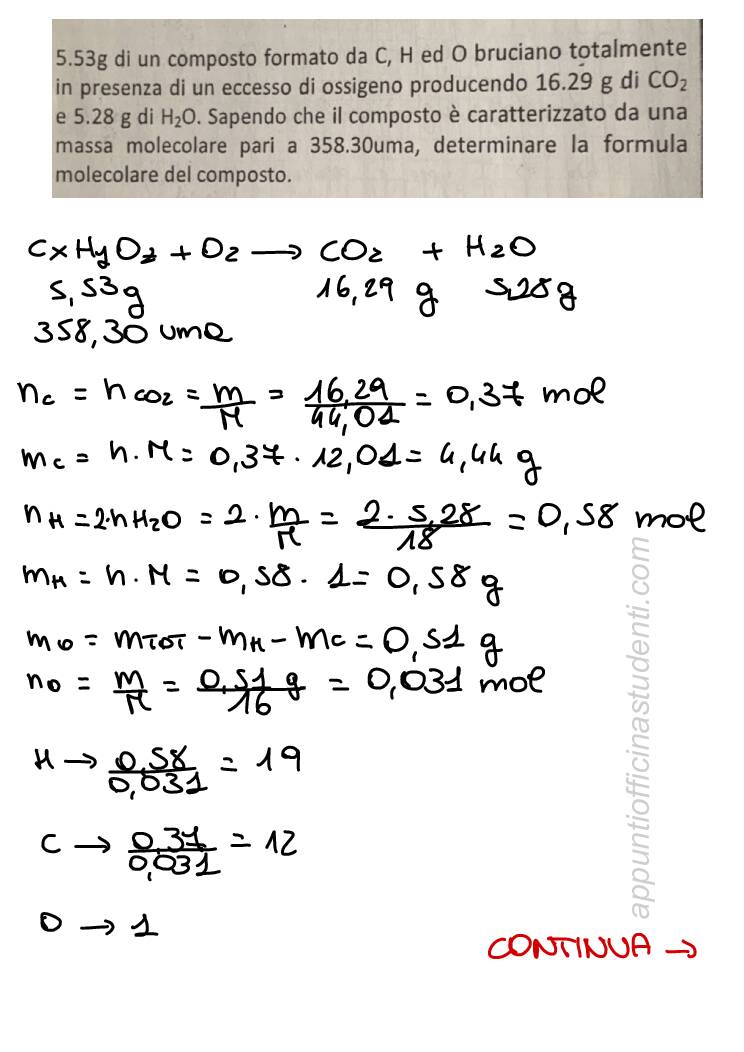 5.53g di un composto formato da C, H ed O bruciano totalmente
in presenza di un eccesso di ossigeno producendo 16.29 g di CO₂
e 5.28 g di H₂O. Sapendo che il composto è caratterizzato da una
massa molecolare pari a 358.30uma, determinare la formula
molecolare del composto.
CxHyOz + O2 → CO2 + H2O
5,53g 16,29 g 5,28g
358,30 uma
nc = nCO2 = m/M = 16,29/44,01 = 0,37 mol
mc = n·M = 0,37 · 12,01 = 4,44 g
nH = 2·nH2O = 2 · m/M = 2 · 5,28/18 = 0,58 mol
mH = n·M = 0,58 · 1 = 0,58 g
mO = mTOT - mH - mC = 0,51 g
nO = m/M = 0,51 g/16 = 0,031 mol
H → 0,58/0,031 = 19
C → 0,37/0,031 = 12
O → 1
CONTINUA →
appuntiofficinastudenti.com